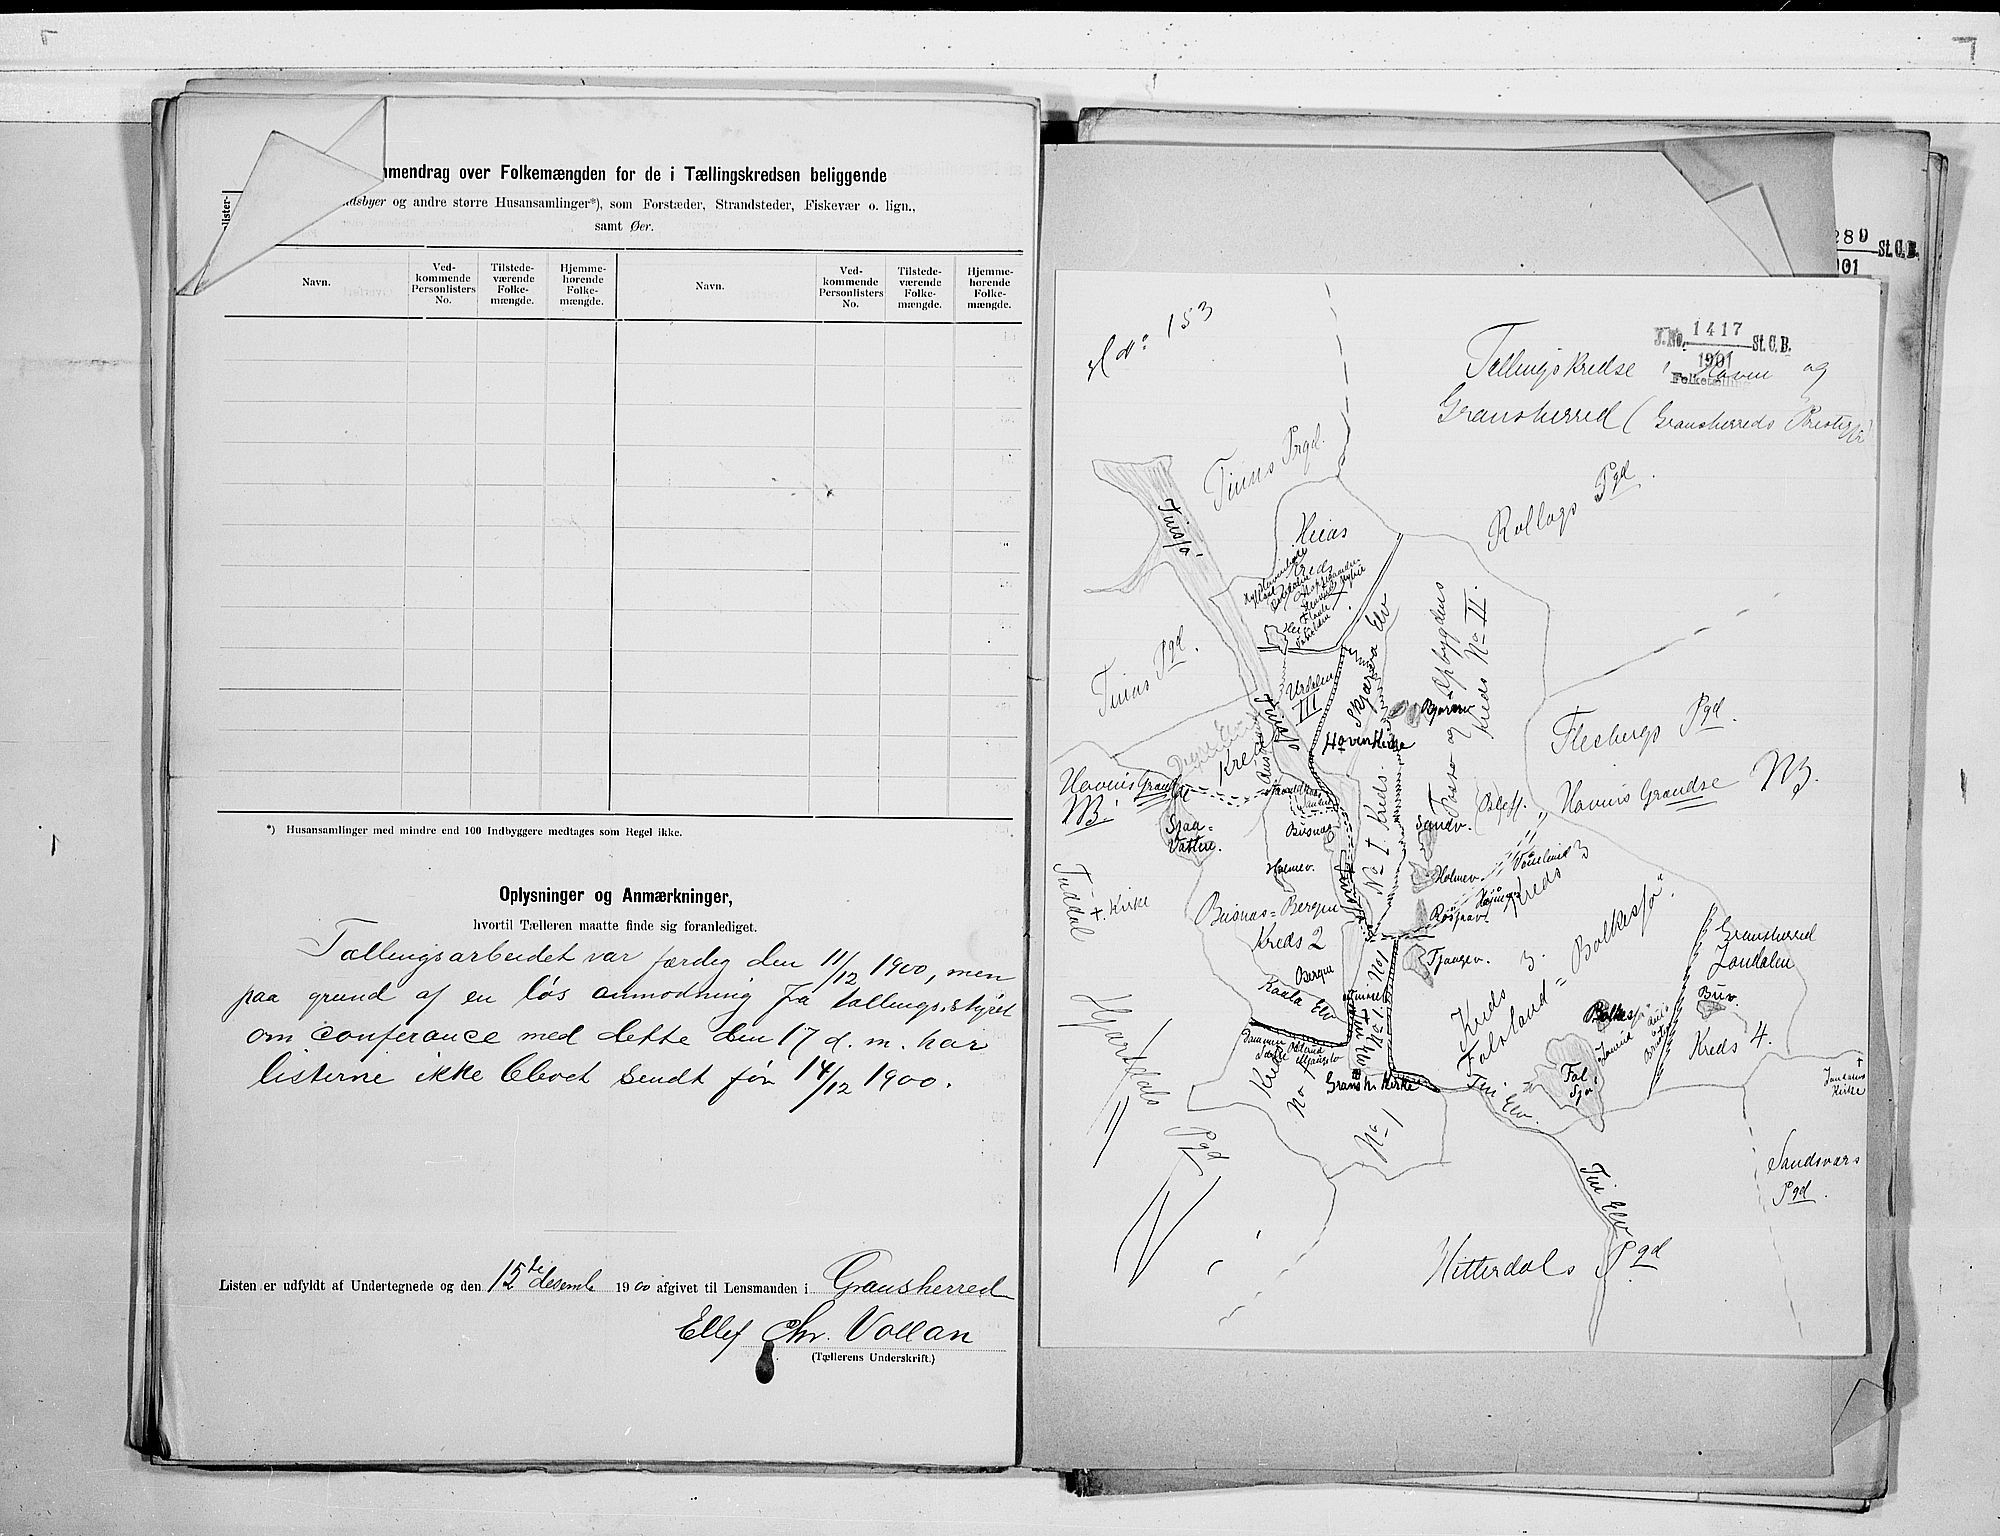 mmendrag over Folkemængden for de i Tællingskredsen beliggende
dsbyer og andre større Husansamlinger*), som Forstæder, Strandsteder, Fiskevær o. lign.,
samt Øer.
lister-
Navn.
Ved-
kommende
Personlisters
No.
Tilstede-
værende
Folke-
mængde.
Hjemme-
hørende
Folke-
mængde.
Navn.
Ved-
kommende
Personlisters
No.
Tilstede-
værende
Folke-
mængde.
Hjemme-
hørende
Folke-
mængde.
*) Husansamlinger med mindre end 100 Indbyggere medtages som Regel ikke.
Oplysninger og Anmærkninger,
hvortil Tælleren maatte finde sig foranlediget.
Tællingsarbeidet var færdig den 11/12 1900, men
paa grund af en løs anmodning fra tællings.styret
om conferance med dette den 17 d. m. har
listerne ikke blevet sendt før 14/12 1900.
Listen er udfyldt af Undertegnede og den 15de desemb 1900 afgivet til Lensmanden i Gransherred
Ellef Chr. Vollan
(Tællerens Underskrift.)
289 St. C. B.
01
153
J. No. 1417 St. C. B.
1901
Folketælling
Tællingskredse i Hovin og
Gransherred (Gransherreds Præstegjæ)
Tinns Prgd.
Rollags Pgd.
Tinsjø
Heias
Kreds
Tinns Pgd.
Skjærva Elv
Opbygdens
Kreds No II.
Urdalen
III
Hovin Kirke
Flesbergs Pgd.
Hovins Grandse
Hovins Grandse
Kreds
No I Kreds.
Sandv.
Sjaa-
Vatten.
Busnas
Holmev.
Holmev.
Tuddal
+ Kirke
Busnas=Bergen
Kreds 2
Bergen
Kaala Elv
Tjaagev.
Kreds
Kreds 3.
Folsland" Bolkesjø".
Gransherred
Jondalen
Buv.
Kreds 4.
Bolkesj
Fol
Sjø
Gransh. Kirke
Kreds
No 1
No 1
Tin Elv.
Jondals
Kirke
Hjartdals Pgd
Sandsværs
Pgd.
Tin Elv
Hitterdals Pgd